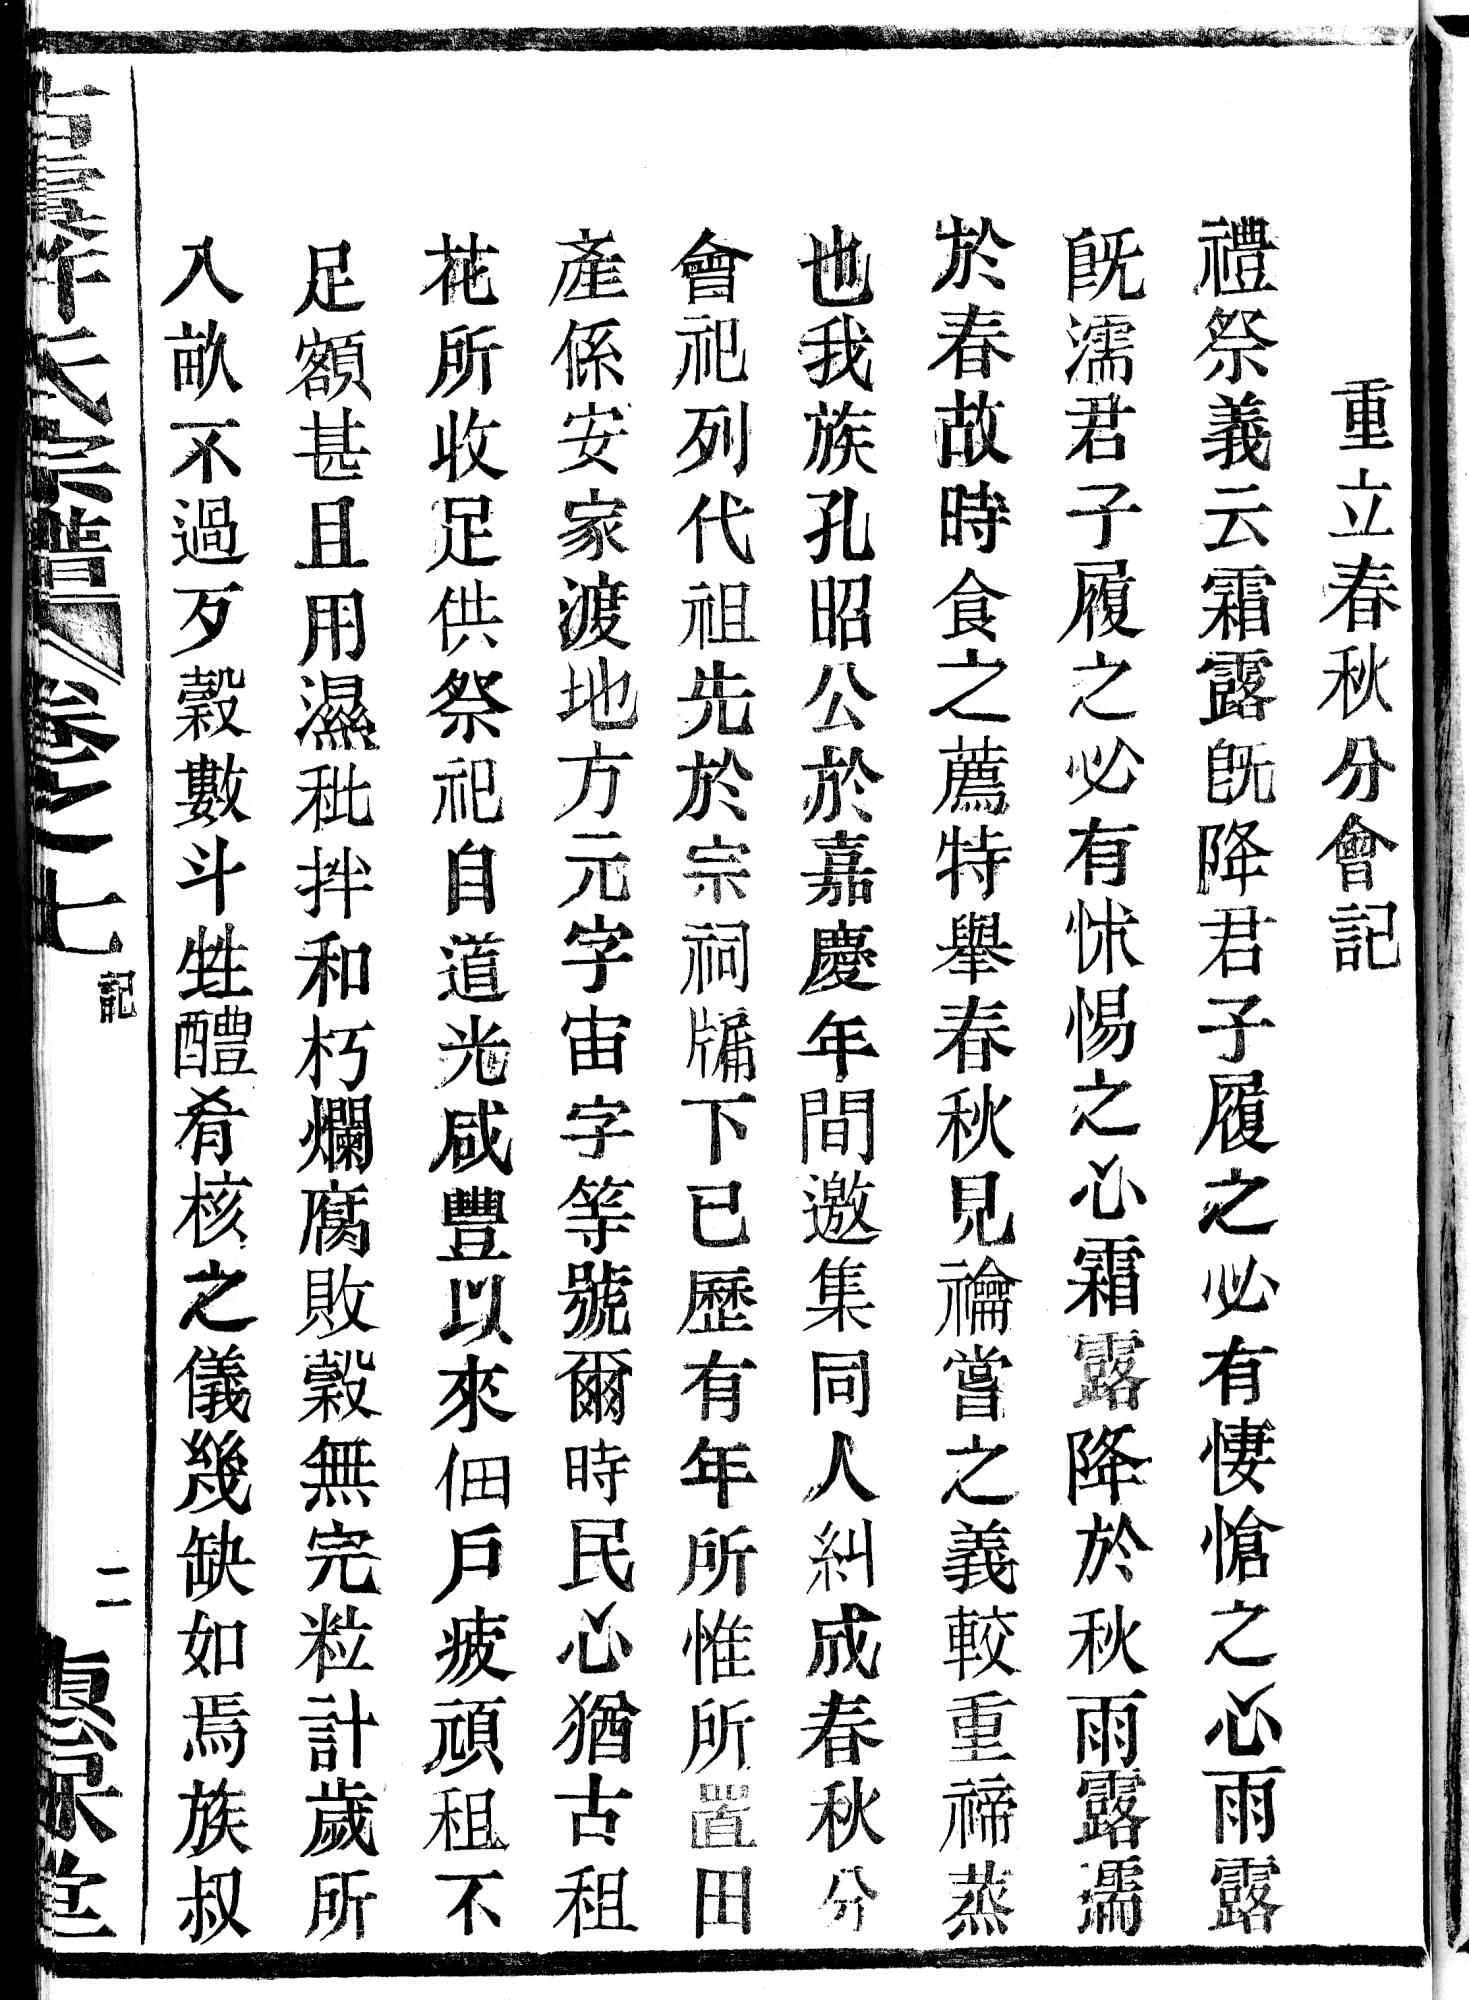 重立春秋分會記
禮祭義云霜露旣降君子履之必有悽愴之心雨露
旣濡君子履之必有怵惕之心霜露降於秋雨露濡
於春故時食之薦特舉春秋見禴嘗之義較重禘蒸
也我族孔昭公於嘉慶年間邀集同人糾成春秋分
會祀列代祖先於宗祠牖下已歷有年所惟所置田
產係安家渡地方元字宙字等號爾時民心猶古租
花所收足供祭祀自道光咸豐以來佃戶疲頑租不
足額甚且用濕秕拌和朽爛腐敗穀無完粒計歲所
入畝不過歹穀數斗牲醴肴核之儀幾缺如焉族叔
許氏宗譜 卷之七 記 二 惠